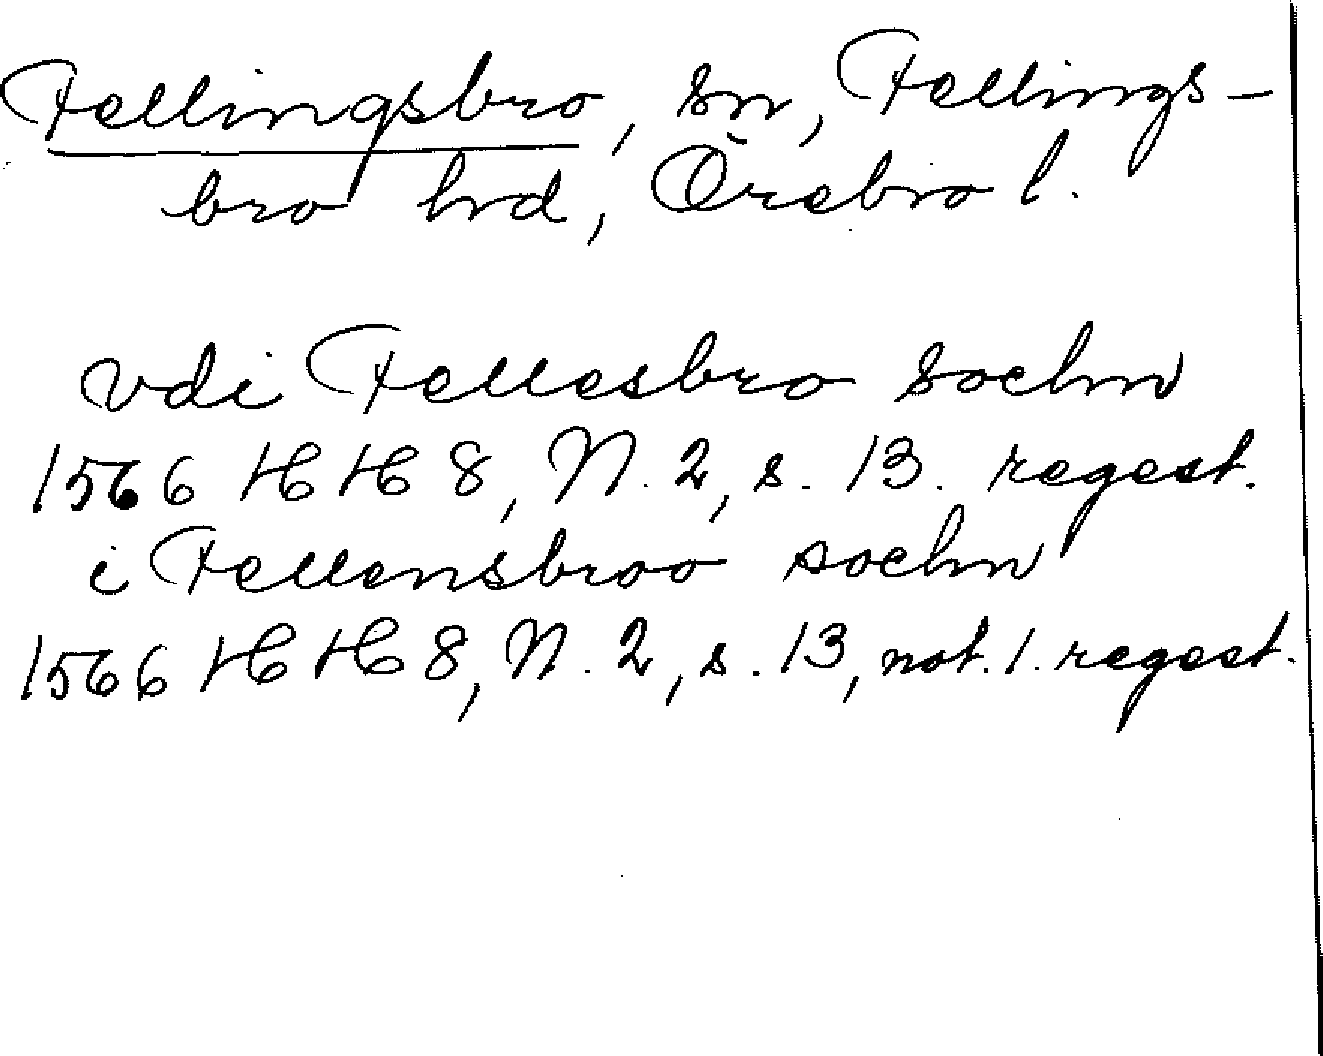 Fellingsbro, sn, Fellings-
bro hrd, Örebro l.
vdi Fellesbro sochn
1566 HH 8, N. 2, s. 13. regest.
i Fellensbroo sochn
1566 HH 8, N. 2, s. 13, not. 1. regest.